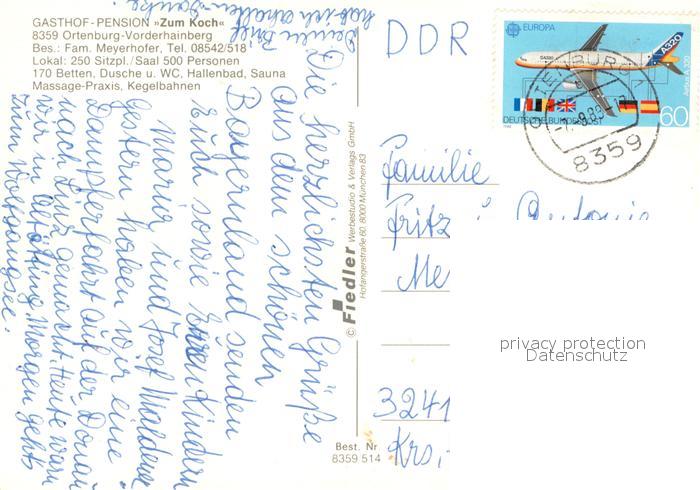 GASTHOF-PENSION »Zum Koch«
8359 Ortenburg-Vorderhainberg
Bes.: Fam. Meyerhofer, Tel. 08542/518
Lokal: 250 Sitzpl./Saal 500 Personen
170 Betten, Dusche u. WC, Hallenbad, Sauna
Massage-Praxis, Kegelbahnen
Deinen Brief
hab ich erhalten. Danke.
Die herzlichsten Grüße
aus dem schönen
Bayernland senden
Euch sowie Euren Kindern
Maria und Josef
Gestern haben wir eine
Dampferfahrt auf der Donau
nach Linz gemacht. Heute warn
wir in Altötting. Morgen gehts
zum Wolfgangsee.
© Fiedler Werbestudio & Verlags GmbH
Hofangerstraße 60, 8000 München 83
Best. Nr.
8359 514
DDR
EUROPA
A320
Airbus A320
DEUTSCHE BUNDESPOST
60
ORTENBURG
8359
Familie
Fritz
Me
3241
Krs.
privacy protection
Datenschutz